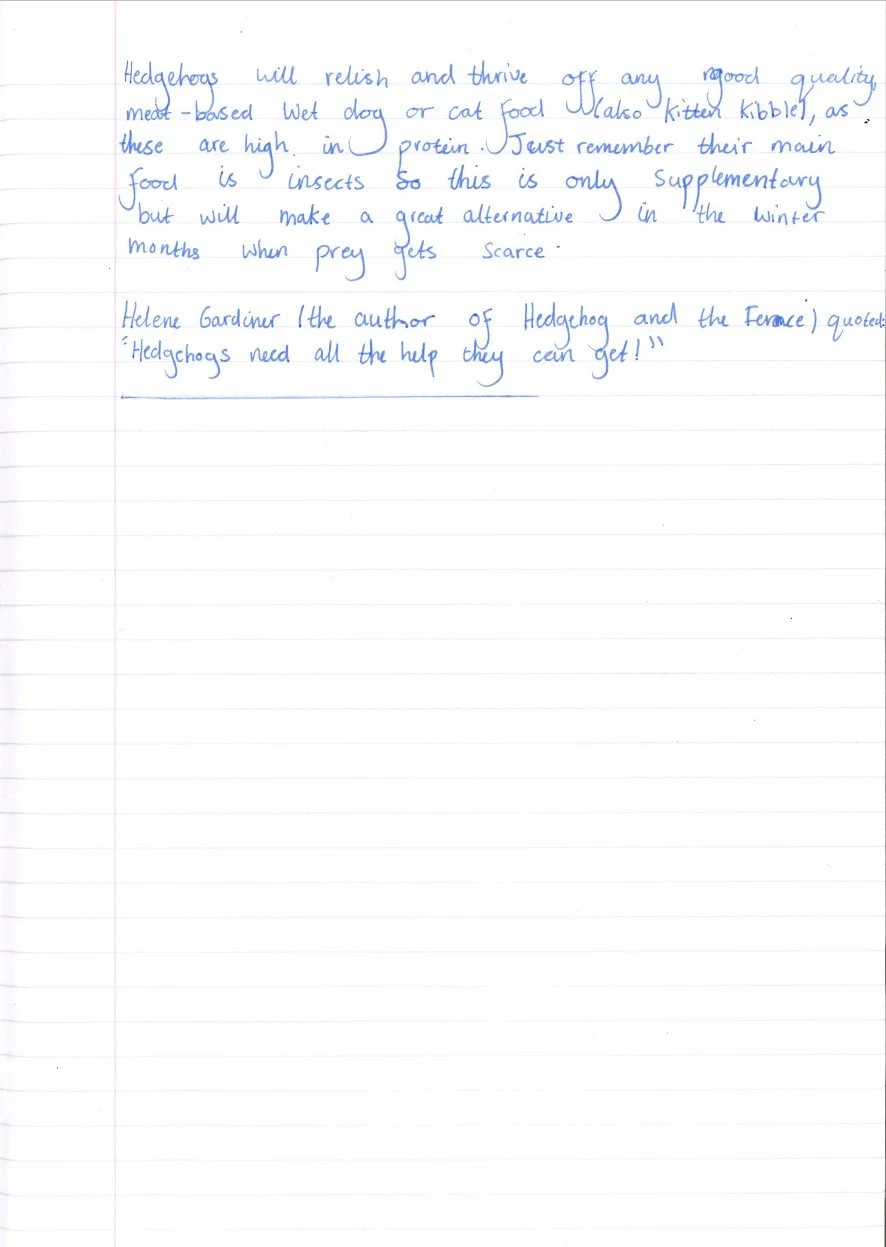 Hedgehogs will relish and thrive off any good quality,
meat-based wet dog or cat food (also kitten kibble), as
these are high in protein. Just remember their main
food is insects so this is only supplementary
but will make a great alternative in the winter
months when prey gets scarce.
Helene Gardiner (the author of Hedgehog and the Fence) quoted:
"Hedgehogs need all the help they can get!"